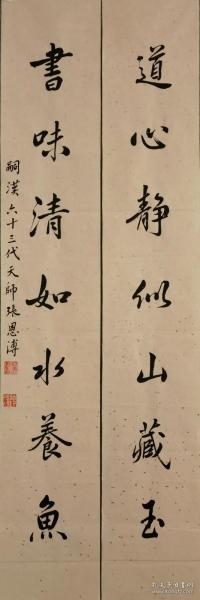 道心静似山藏玉
書味清如水養魚
嗣漢六十三代天師張恩溥